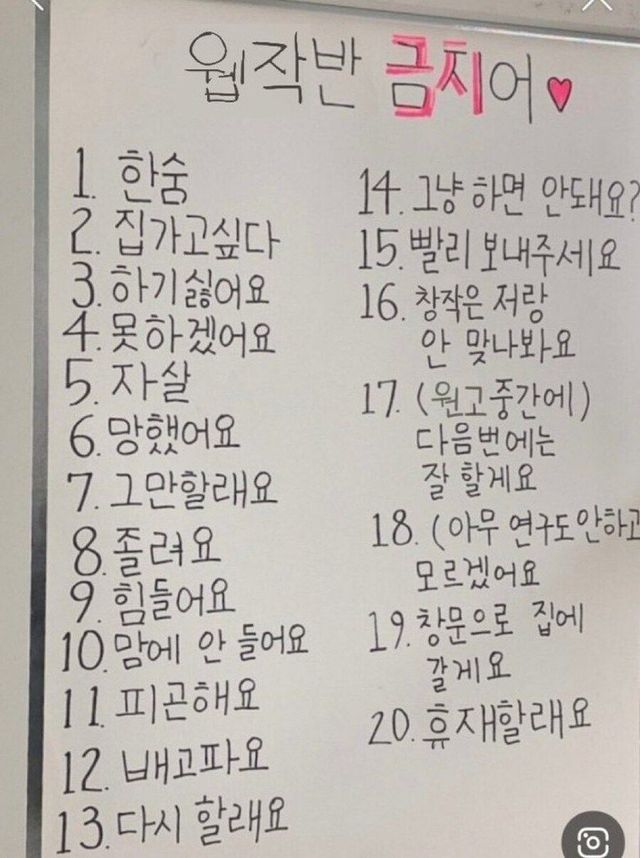 웹작반 금지어♥
1. 한숨
2. 집가고싶다
3. 하기싫어요
4. 못하겠어요
5. 자살
6. 망했어요
7. 그만할래요
8. 졸려요
9. 힘들어요
10. 맘에 안 들어요
11. 피곤해요
12. 배고파요
13. 다시 할래요
14. 그냥 하면 안돼요?
15. 빨리 보내주세요
16. 창작은 저랑
안 맞나봐요
17. (원고중간에)
다음번에는
잘 할게요
18. (아무 연구도안하고
모르겠어요
19. 창문으로 집에
갈게요
20. 휴재할래요